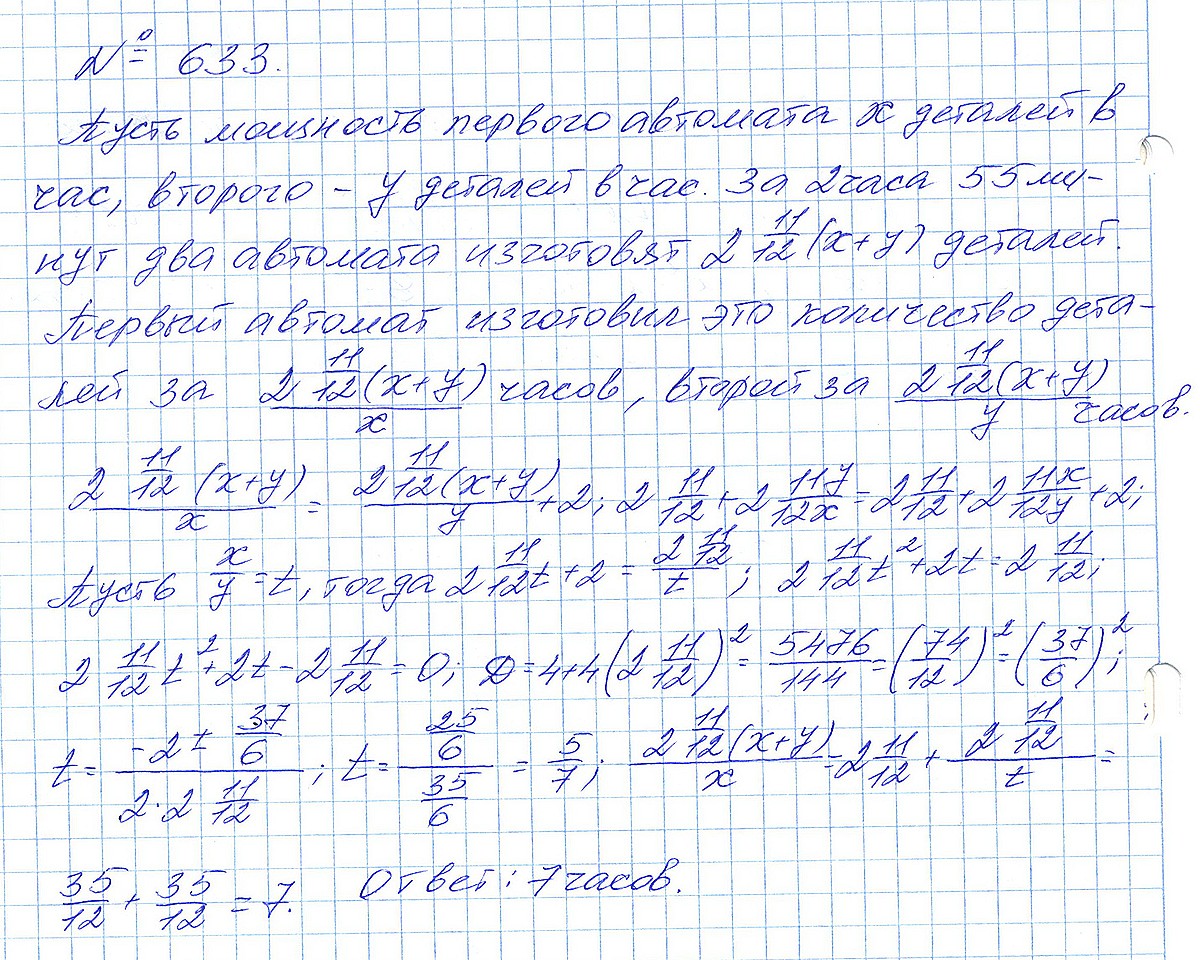 № 633.
Пусть мощность первого автомата x деталей в
час, второго – y деталей в час. За 2 часа 55 ми-
нут два автомата изготовят 2 11/12 (x+y) деталей.
Первый автомат изготовил это количество дета-
лей за (2 11/12 (x+y))/x часов, второй за (2 11/12 (x+y))/y часов.
(2 11/12 (x+y))/x = (2 11/12 (x+y))/y + 2; 2 11/12 + 2 11y/12x = 2 11/12 + 2 11x/12y + 2;
Пусть x/y = t, тогда 2 11/12 t + 2 = (2 11/12)/t; 2 11/12 t² + 2t = 2 11/12;
2 11/12 t² + 2t - 2 11/12 = 0; D = 4+4(2 11/12)² = 5476/144 = (74/12)² = (37/6)²;
t = (-2 ± 37/6)/(2·2 11/12); t = (25/6)/(35/6) = 5/7; (2 11/12 (x+y))/x = 2 11/12 + (2 11/12)/t =
35/12 + 35/12 = 7. Ответ: 7 часов.